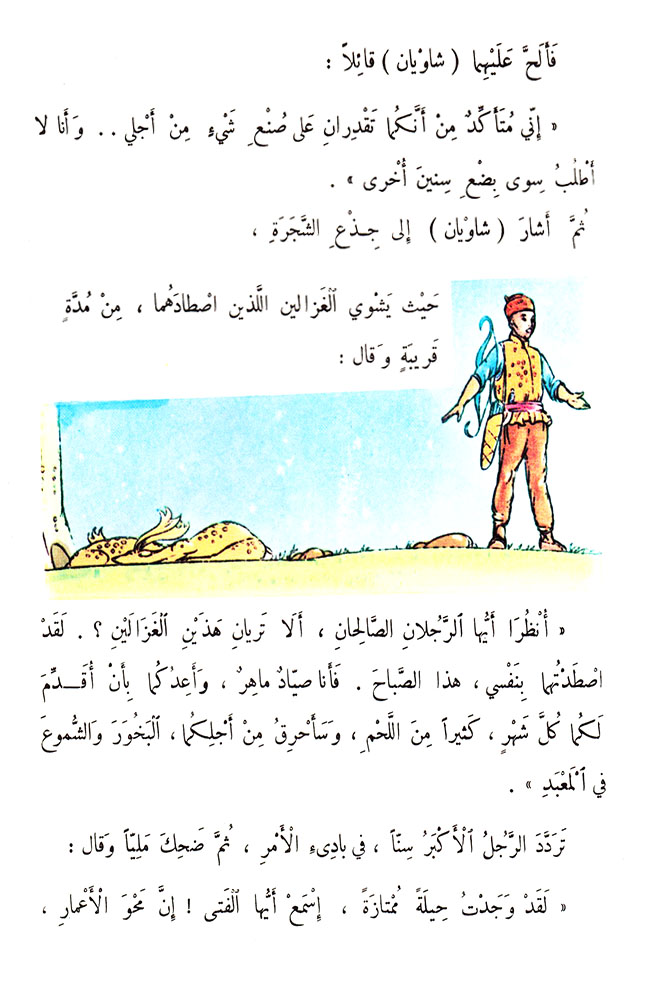 فَأَلَحَّ عَلَيْهِما ( شاوْيان ) قائِلاً :
« إِنّي مُتَأَكِّدٌ مِنْ أَنَّكُما تَقْدِرانِ عَلى صُنْعِ شَيْءٍ مِنْ أَجْلي .. وَأَنا لا
أَطْلُبُ سِوى بِضْعِ سِنينَ أُخْرى » .
ثُمَّ أَشارَ ( شاوْيان ) إِلى جِـذْعِ الشَّجَرَةِ ،
حَيْث يَشْوي ٱلْغَزالين اللَّذين اصْطادَهُما ، مِنْ مُدَّةٍ
قَريبَةٍ وَقال :
« أُنْظُرَا أَيُّها ٱلرَّجُلانِ الصَّالِحانِ ، أَلا تَرِيانِ هَذَيْنِ ٱلْغَزَالَيْنِ ؟ . لَقَدْ
اصْطَدْتُهما بِنَفْسي ، هذا الصَّباحَ . فَأَنا صيّادٌ ماهِرٌ ، وَأَعِدُكُما بِأَنْ أُقَـــدِّمَ
لَكُما كُلَّ شَهْرٍ ، كَثيراً مِنَ اللَّحْمِ ، وَسَأَحْرِقُ مِنْ أَجْلِكُما ، ٱلْبَخُورَ وَالشُّموعَ
في ٱلْمَعْبَدِ » .
تَرَدَّدَ الرَّجُلُ ٱلْأَكْبَرُ سِنّاً ، في بادِىءِ الْأَمْرِ ، ثُمَّ ضَحِكَ مَلِيّاً وَقال :
« لَقَدْ وَجَدْتُ حِيلَةً مُمْتازَةً ، إِسْمَعْ أَيُّها ٱلْفَتى ! إِنَّ مَحْوَ الْأَعْمارِ ،